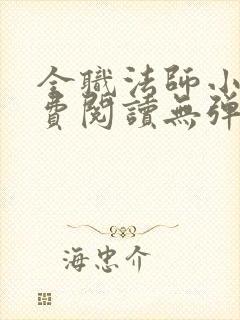 全職法師小
費閱讀無彈
海忠介